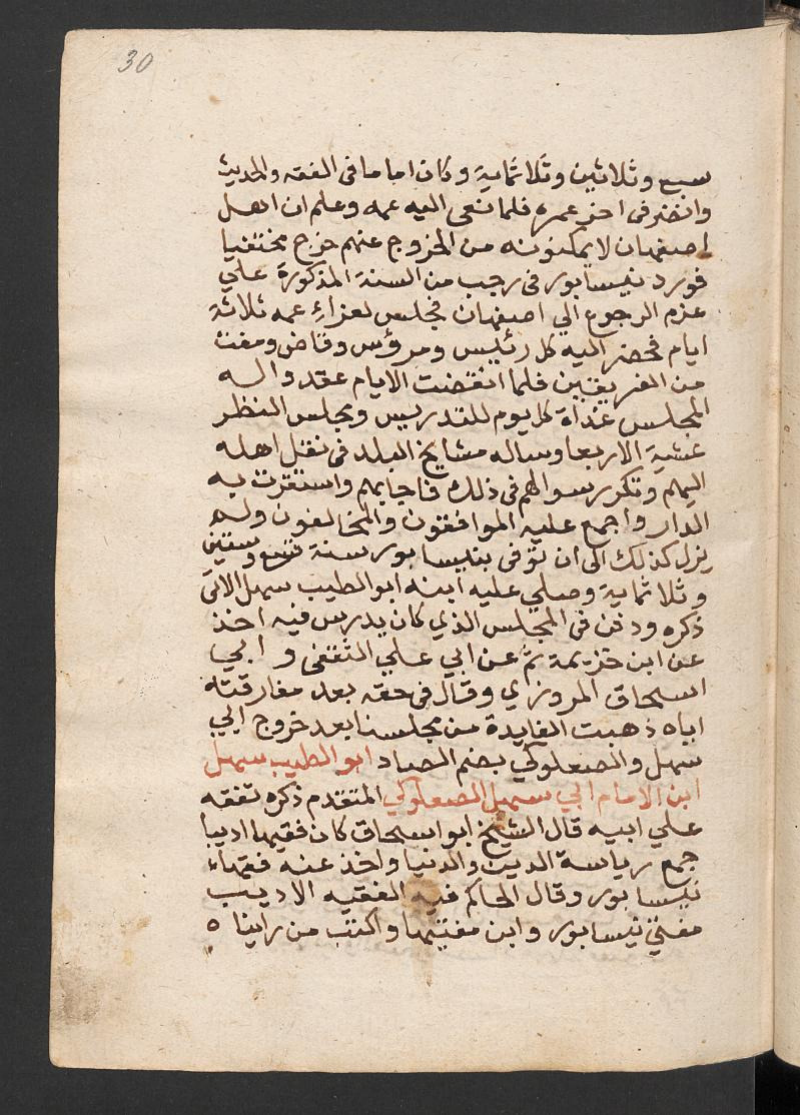 30
سبع وثلاثين وثلاثماية وكان اماما فى الفقه والحديث
وانضر فى اخر عمره فلما نعى اليه عمه وعلم ان اهل
اصفهان لا يمكنونه من الخروج عنهم خرج مختفيا
فورد نيسابور فى رجب من السنة المذكورة علي
عزم الرجوع الي اصفهان فجلس لعزاء عمه ثلاثة
ايام فحضر اليه كل رئيس ومرؤس وقاض ومفت
من الفريقين فلما انقضت الايام عقدوا له
المجلس غداة كل يوم للتدريس ومجلس النظر
عشية الاربعا وساله مشايخ البلد فى نقل اهله
اليهم وتكرر سوالهم فى ذلك فاجابهم واستقرت به
الدار واجمع عليه الموافقون والمخالفون ولم
يزل كذلك الى ان توفى بنيسابور سنة تسع وستين
وثلاثماية وصلي عليه ابنه ابو الطيب سهل الاتى
ذكره ودفن فى المجلس الذي كان يدرس فيه اخذ
عن ابن خزيمة ثم عن ابي علي الثقفى وابي
اسحاق المروزي وقال فى حقه بعد مفارقته
اياه ذهبت الفايدة من مجلسنا بعد خروج ابي
سهل والصعلوكي بضم الصاد ابو الطيب سهل
ابن الامام ابي سهل الصعلوكي المتقدم ذكره تفقه
علي ابيه قال الشيخ ابو اسحاق كان فقيها اديبا
جمع رياسة الدين والدنيا واخذ عنه فقهاء
نيسابور وقال الحاكم فيه الفقيه الاديب
مفتى نيسابور وابن مفتيها واكتب من راينا ه